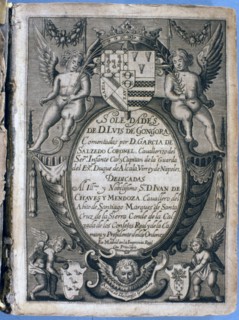 SOLEDADES
DE D. LVIS DE GONGORA
Comentadas por D. GARCIA DE
SALZEDO CORONEL. Cauallerizo del
Ser.mo Infante Car. y Capitan de la Guarda
del Ex. Duque de Alcala Virrey de Napoles.
DEDICADAS
Al Il.mo y Nobilissimo S. D. IVAN DE
CHAVES Y MENDOZA Cauallero del
Abito de Santiago Marques de Santa
Cruz de la Sierra Conde de la Cal
çada de los Consejos Real y de la Ca
mara y Presidente de las Ordenes
En Madrid en la Imprenta Real